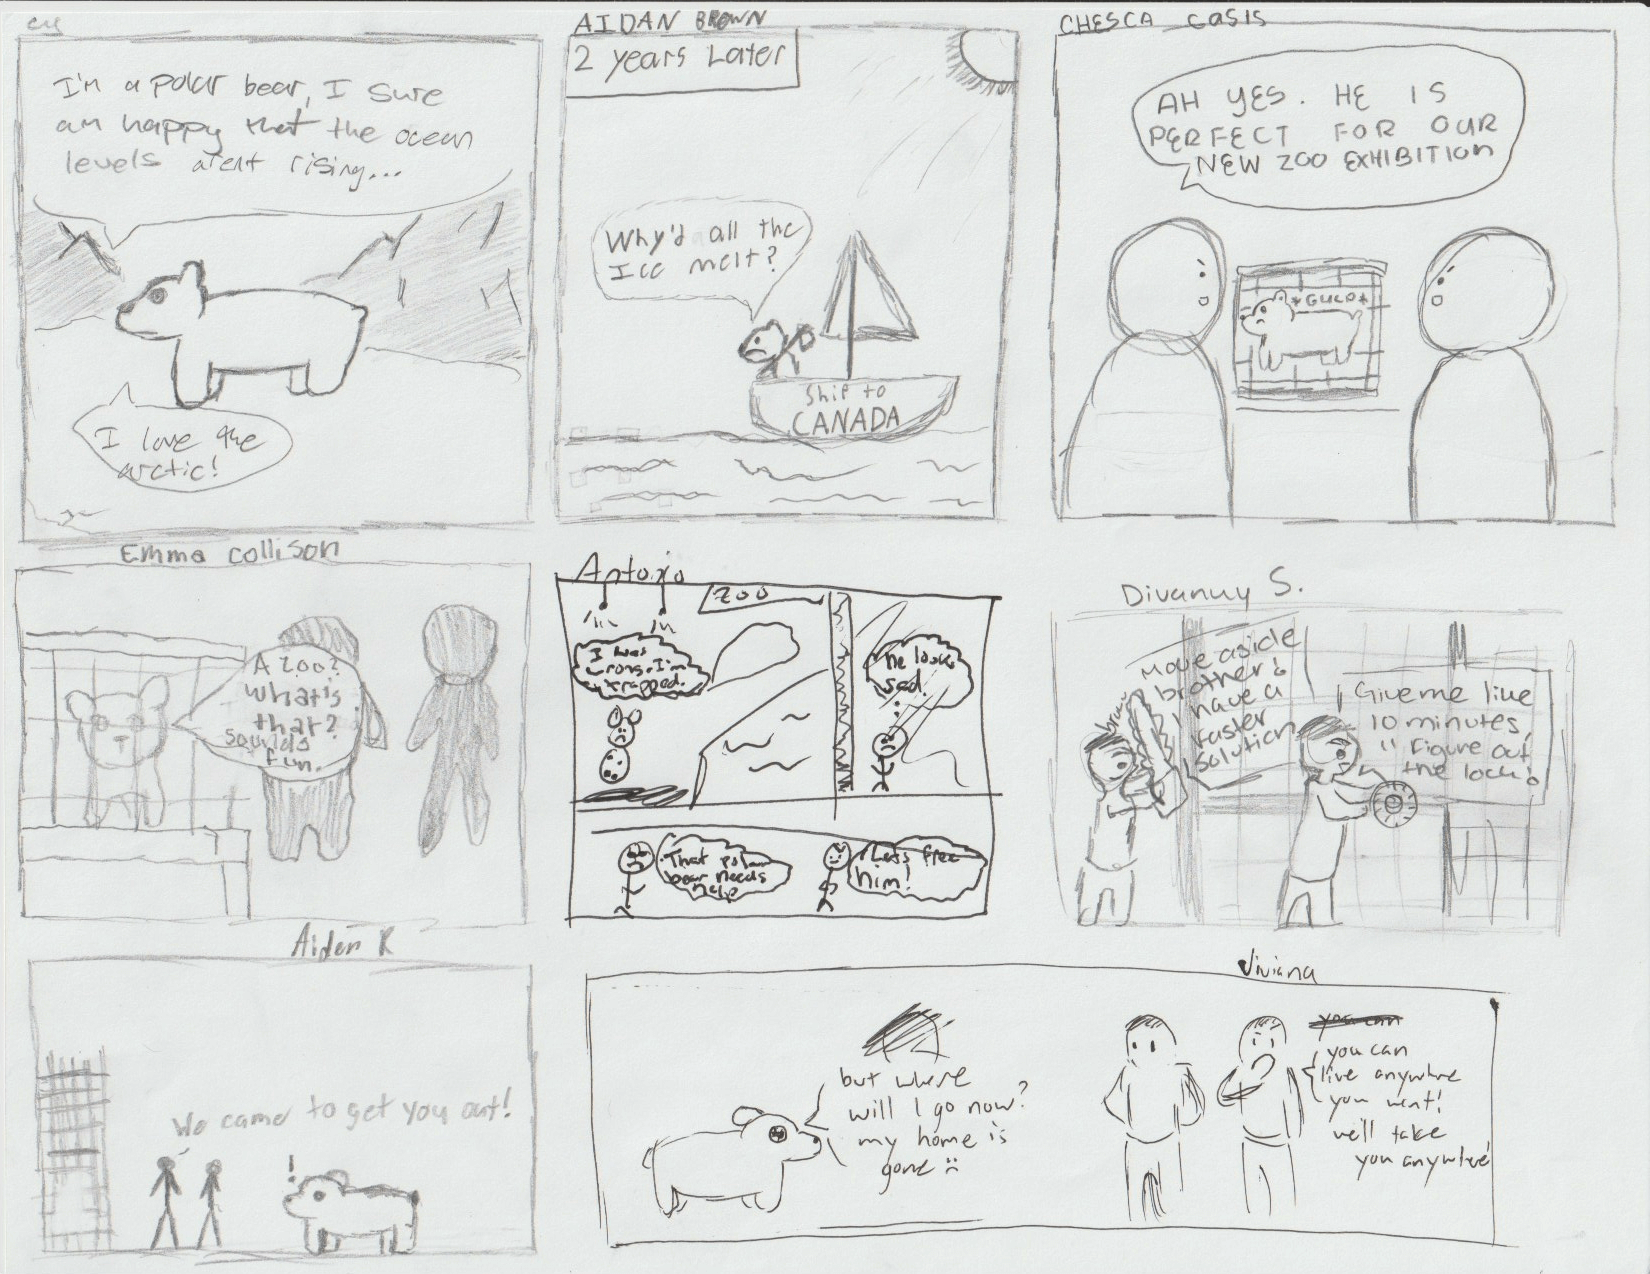 CY
I'm a polar bear, I sure
am happy that the ocean
levels arent rising...
I love the
arctic!
AIDAN BROWN
2 years Later
Why'd all the
Ice melt?
Ship to
CANADA
CHESCA GASIS
AH YES. HE IS
PERFECT FOR OUR
NEW ZOO EXHIBITION
*GULP*
Emma Collison
A Zoo?
What's
that?
sounds
fun.
Antonio
ZOO
I was
wrong. I'm
trapped.
he looks
sad.
That polar
bear needs
help
Lets free
him!
Divanuy S.
Move aside
brother!
I have a
faster
solution
Give me like
10 minutes,
I'll figure out
the lock!
Aiden R
We came to get you out!
!
Viviana
but where
will I go now?
my home is
gone :(
you can
you can
live anywhere
you want!
we'll take
you anywhere!